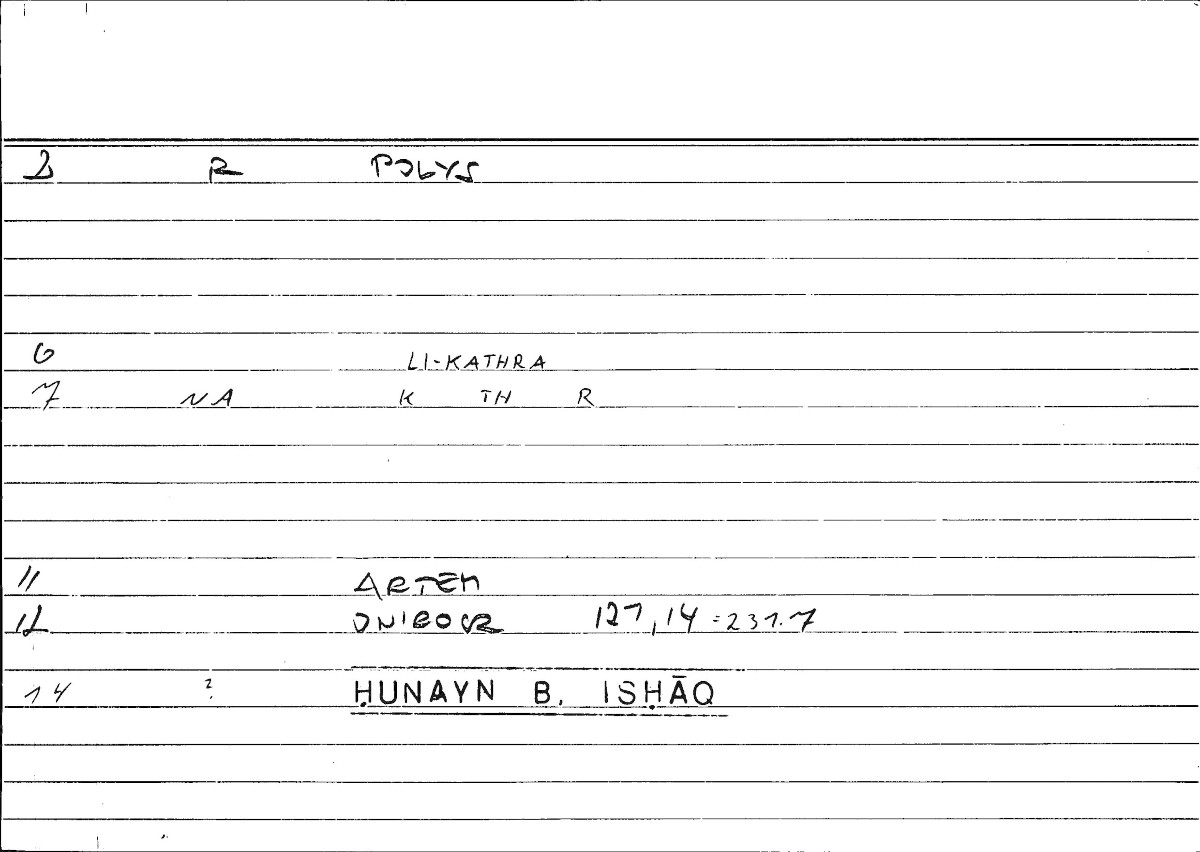 2 R POLYS
6 LI-KATHRA
7 NA K TH R
11 ARTEM
12 ONIROCR 127,14 = 231.7
14 ? ḤUNAYN B. ISḤĀQ